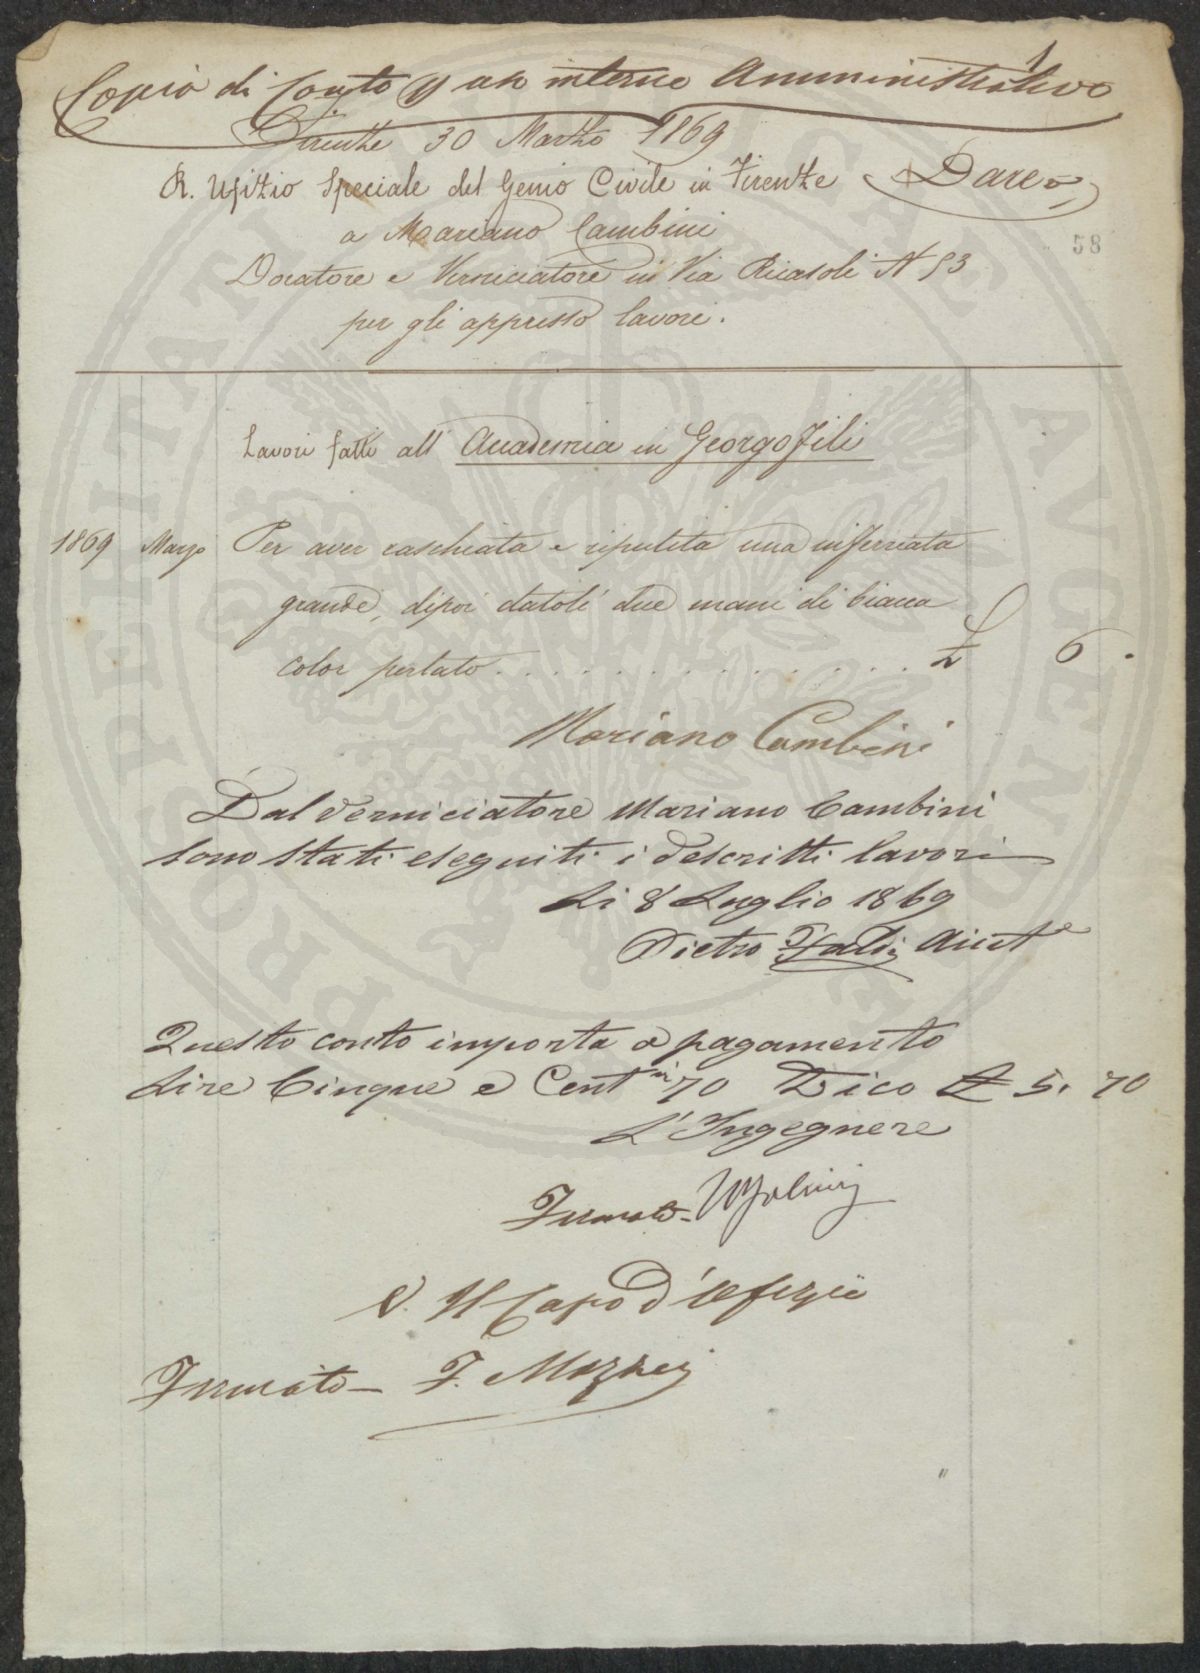 Copia di Conto p uso interno Amministrativo
Firenze 30 Marzo 1869
R. Ufizio Speciale del Genio Civile in Firenze Dare
a Mariano Cambini
58
Doratore e Verniciatore in Via Ricasoli N 53
per gli appresso lavori.
Lavori fatti all' Accademia in Georgofili
1869 Marzo Per aver raschiata e ripulita una inferriata
grande, dipoi datoli due mani di biacca
color perlato . . . . . . . . . . . . . . £ 6 .
Mariano Cambini
Dal Verniciatore Mariano Cambini
sono stati eseguiti i descritti lavori
Li 8 Luglio 1869
Pietro Aiute
Questo conto importa a pagamento
Lire Cinque e Centmi 70 Dico £ 5. 70
L'Ingegnere
Firmato
V. Il Capo d'Ufizio
Firmato - F. Mazzei
PROSPERITATI PUBLICAE AUGENDAE